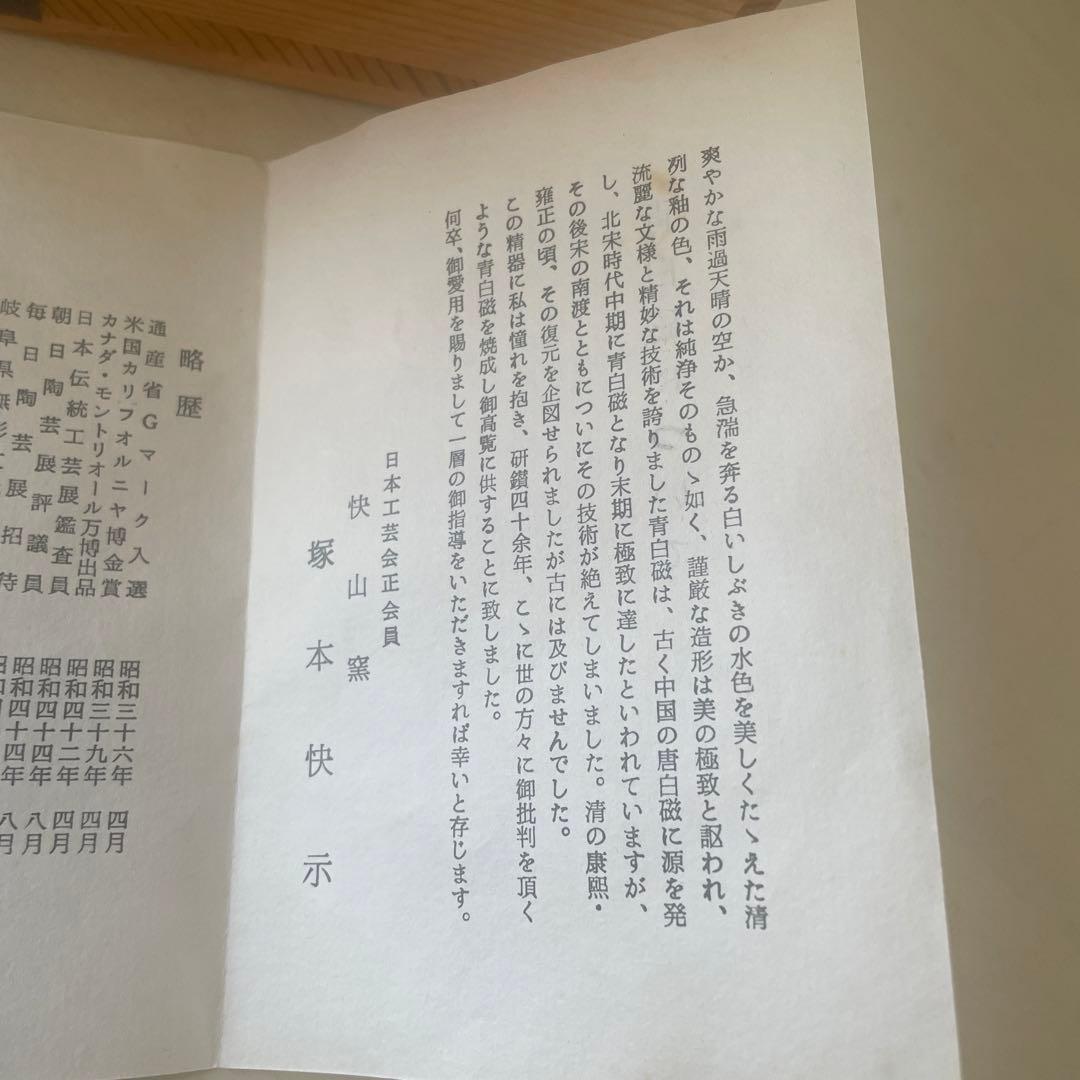 爽やかな雨過天晴の空か、急湍を奔る白いしぶきの水色を美しくたゝえた清
冽な釉の色、それは純浄そのものゝ如く、謹厳な造形は美の極致と謳われ、
流麗な文様と精妙な技術を誇りました青白磁は、古く中国の唐白磁に源を発
し、北宋時代中期に青白磁となり末期に極致に達したといわれていますが、
その後宋の南渡とともについにその技術が絶えてしまいました。清の康熙・
雍正の頃、その復元を企図せられましたが古には及びませんでした。
この精器に私は憧れを抱き、研鑽四十余年、こゝに世の方々に御批判を頂く
ような青白磁を焼成し御高覧に供することに致しました。
何卒、御愛用を賜りまして一層の御指導をいただきますれば幸いと存じます。
日本工芸会正会員
快山窯
塚本快示
略歴
通産省Gマーク入選 昭和三十六年 四月
米国カリフオルニヤ博金賞 昭和三十九年 四月
カナダ・モントリオール万博出品 昭和四十二年 四月
日本伝統工芸展鑑査員 昭和四十四年 八月
朝日陶芸展評議員
毎日陶芸展
岐阜県無形 招待